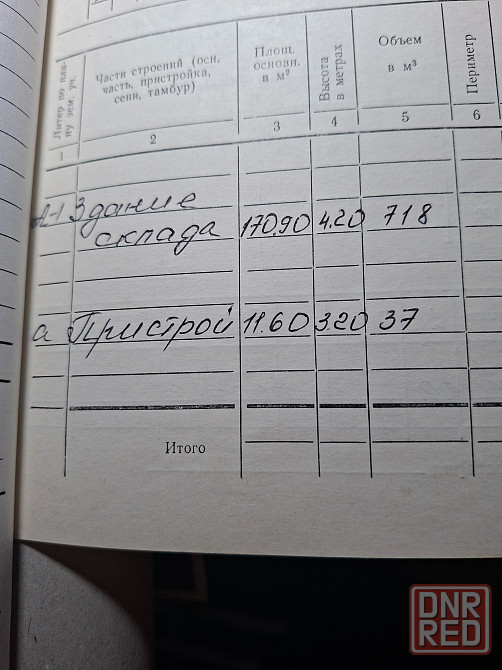 Литер по пла-
ну зем. уч.
Части строений (осн.
часть, пристройка,
сени, тамбур)
Площ.
основн.
в м²
Высота
в метрах
Объем
в м³
Периметр
1 2 3 4 5 6
А-1 Здание
склада 170.90 4.20 718
а Пристрой 11.60 3.20 37
Итого
DNR
RED